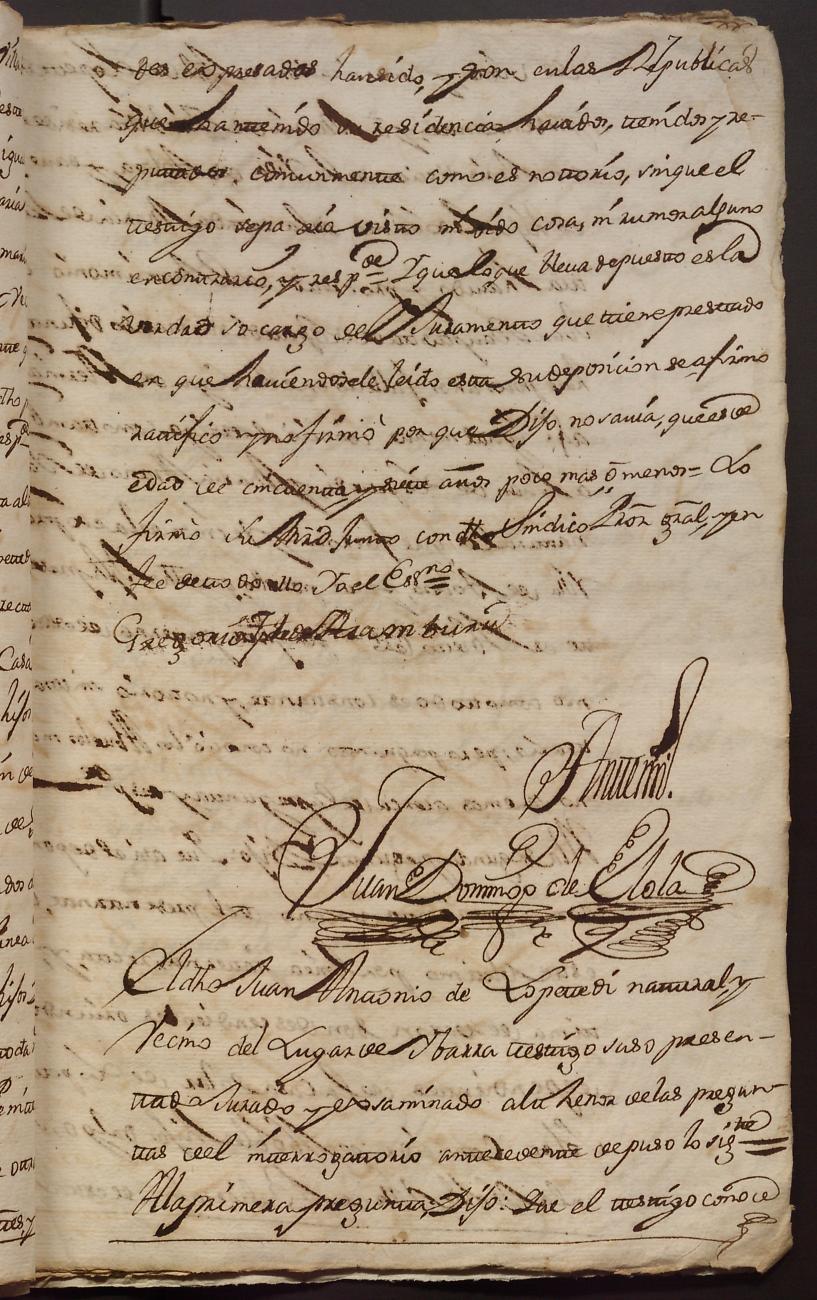 dos expresados han sido, y son en las Republicas
que han tenido su residencia havidos, tenidos y re-
putados comunmente como es notorio, sin que el
testigo sepa aia visto ni oido cosa, ni rumor alguno
en contrario, y resp.de Y que lo que lleva depuesto es la
verdad so cargo del Juramento que tiene prestado
en que haviendosele leido esta su deposicion se afirmo
ratifico y no firmò por que Dijo no savia, que es de
edad de cinquenta y siete años poco mas ò menos= Lo
firmo su Mrd. junto con dho Sindico Pror. gral, y en
fee de todo ello Yo el Essno=
Gregorio Aramburu
Antemi.
Juan Domingo de Elola
El dho Juan Antonio de Lopetedi natural, y
Vecino del Lugar de Ybarra testigo suso presen-
tado Jurado y exsaminado al thenor de las pregun-
tas del interrogatorio antecedente depuso lo sigte=
A la primera pregunta, Dijo: Que el testigo conoce